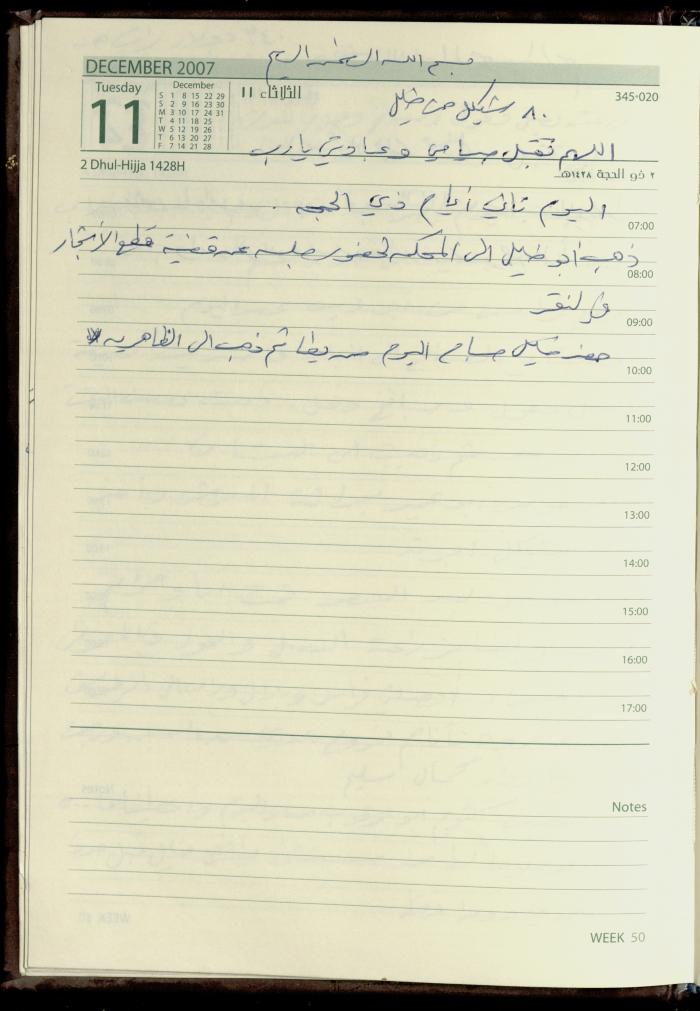 بسم الله الرحمن الرحيم
DECEMBER 2007
Tuesday
11
December
S 1 8 15 22 29
S 2 9 16 23 30
M 3 10 17 24 31
T 4 11 18 25
W 5 12 19 26
T 6 13 20 27
F 7 14 21 28
الثلاثاء ١١
345-020
٨٠ شيكل من خليل
اللهم تقبل صيامي وعبادتي يا رب
2 Dhul-Hijja 1428H
٢ ذو الحجة ١٤٢٨هـ
اليوم ثاني أيام ذي الحجه .
07:00
ذهب أبو خليل الى المحكمه لحضور جلسه عن قضية قطع الأشجار
08:00
09:00
حضر خليل صباح اليوم من يطا ثم ذهب الى الظاهريه
10:00
11:00
12:00
13:00
14:00
15:00
16:00
17:00
Notes
WEEK 50